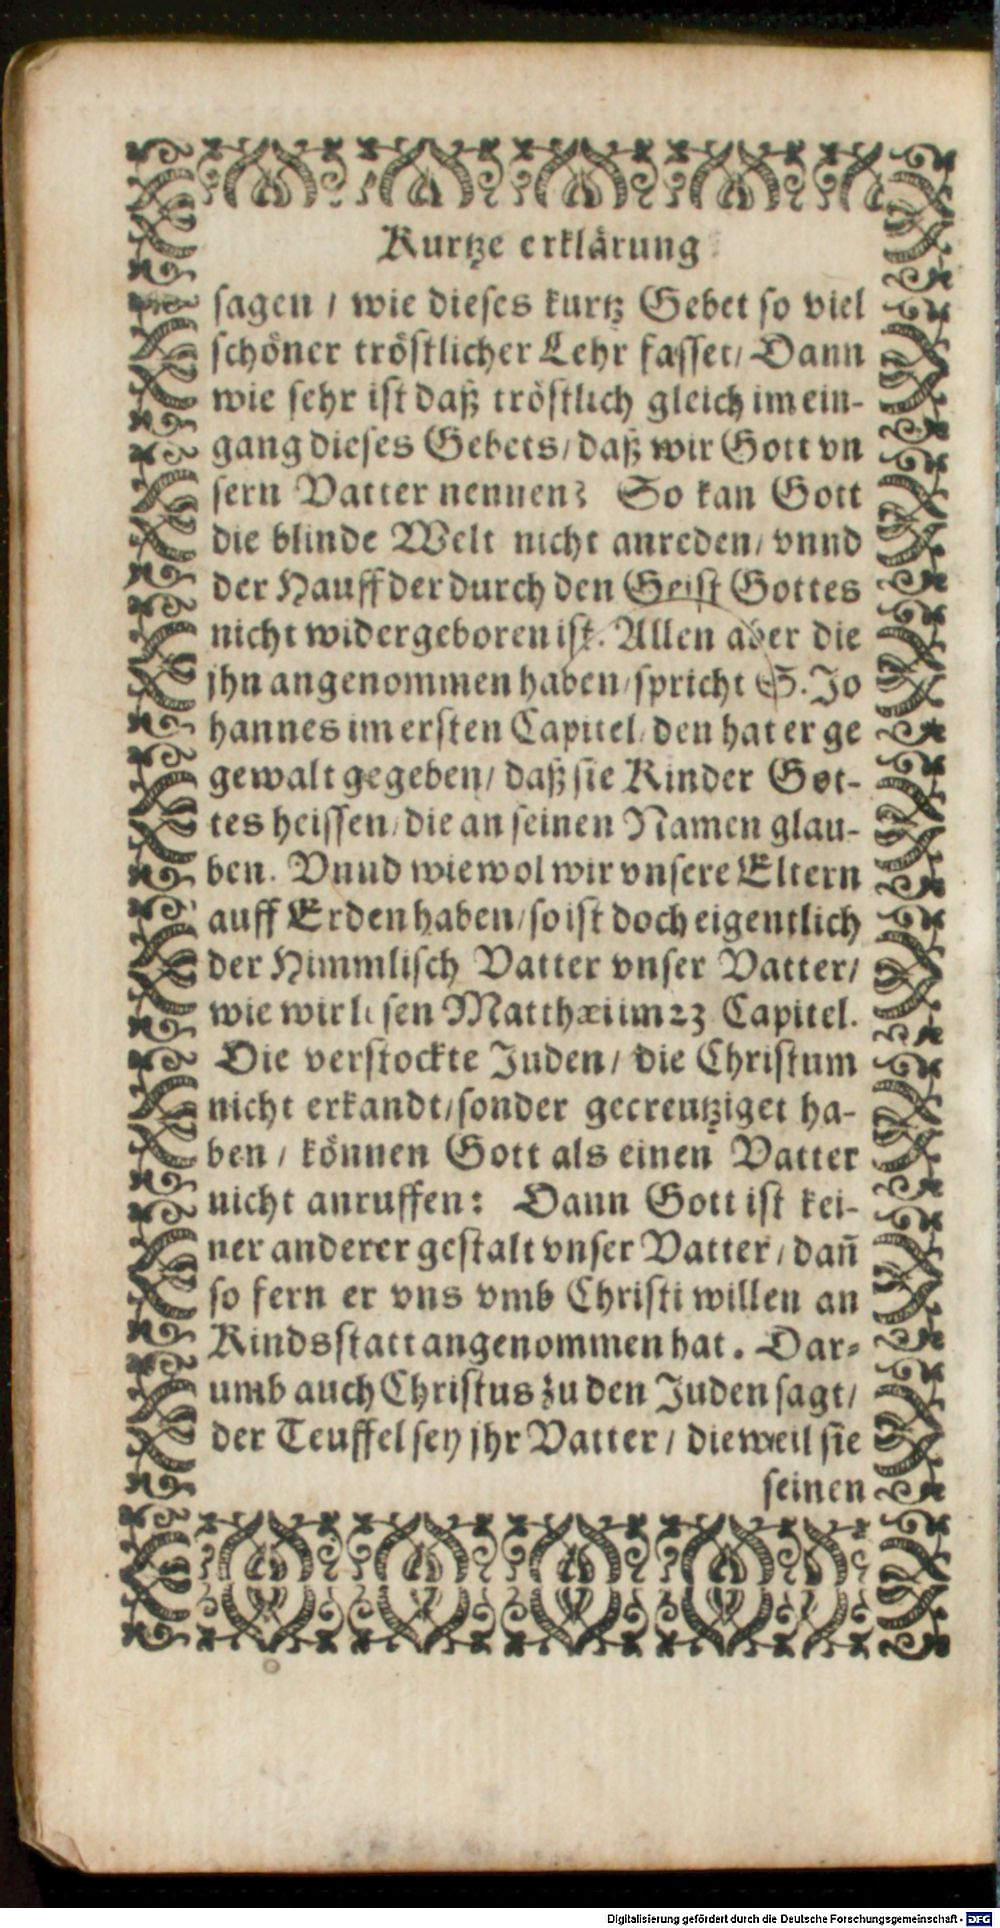 Kurtze erklärung
sagen / wie dieses kurtz Gebet so viel
schöner tröstlicher Lehr fasset / Dann
wie sehr ist daß tröstlich gleich im ein-
gang dieses Gebets / daß wir Gott vn
sern Vatter nennen? So kan Gott
die blinde Welt nicht anreden / vnnd
der Hauff der durch den Geist Gottes
nicht widergeboren ist. Allen aber die
jhn angenommen haben / spricht S. Jo
hannes im ersten Capitel / den hat er ge
gewalt gegeben / daß sie Kinder Got-
tes heissen / die an seinen Namen glau-
ben. Vnnd wiewol wir vnsere Eltern
auff Erden haben / so ist doch eigentlich
der Himmlisch Vatter vnser Vatter /
wie wir lesen Matthæi im 23 Capitel.
Die verstockte Juden / die Christum
nicht erkandt / sonder gecreutziget ha-
ben / können Gott als einen Vatter
nicht anruffen: Dann Gott ist kei-
ner anderer gestalt vnser Vatter / dañ
so fern er vns vmb Christi willen an
Kindsstatt angenommen hat. Dar-
umb auch Christus zu den Juden sagt /
der Teuffel sey jhr Vatter / dieweil sie
seinen
Digitalisierung gefördert durch die Deutsche Forschungsgemeinschaft - DFG